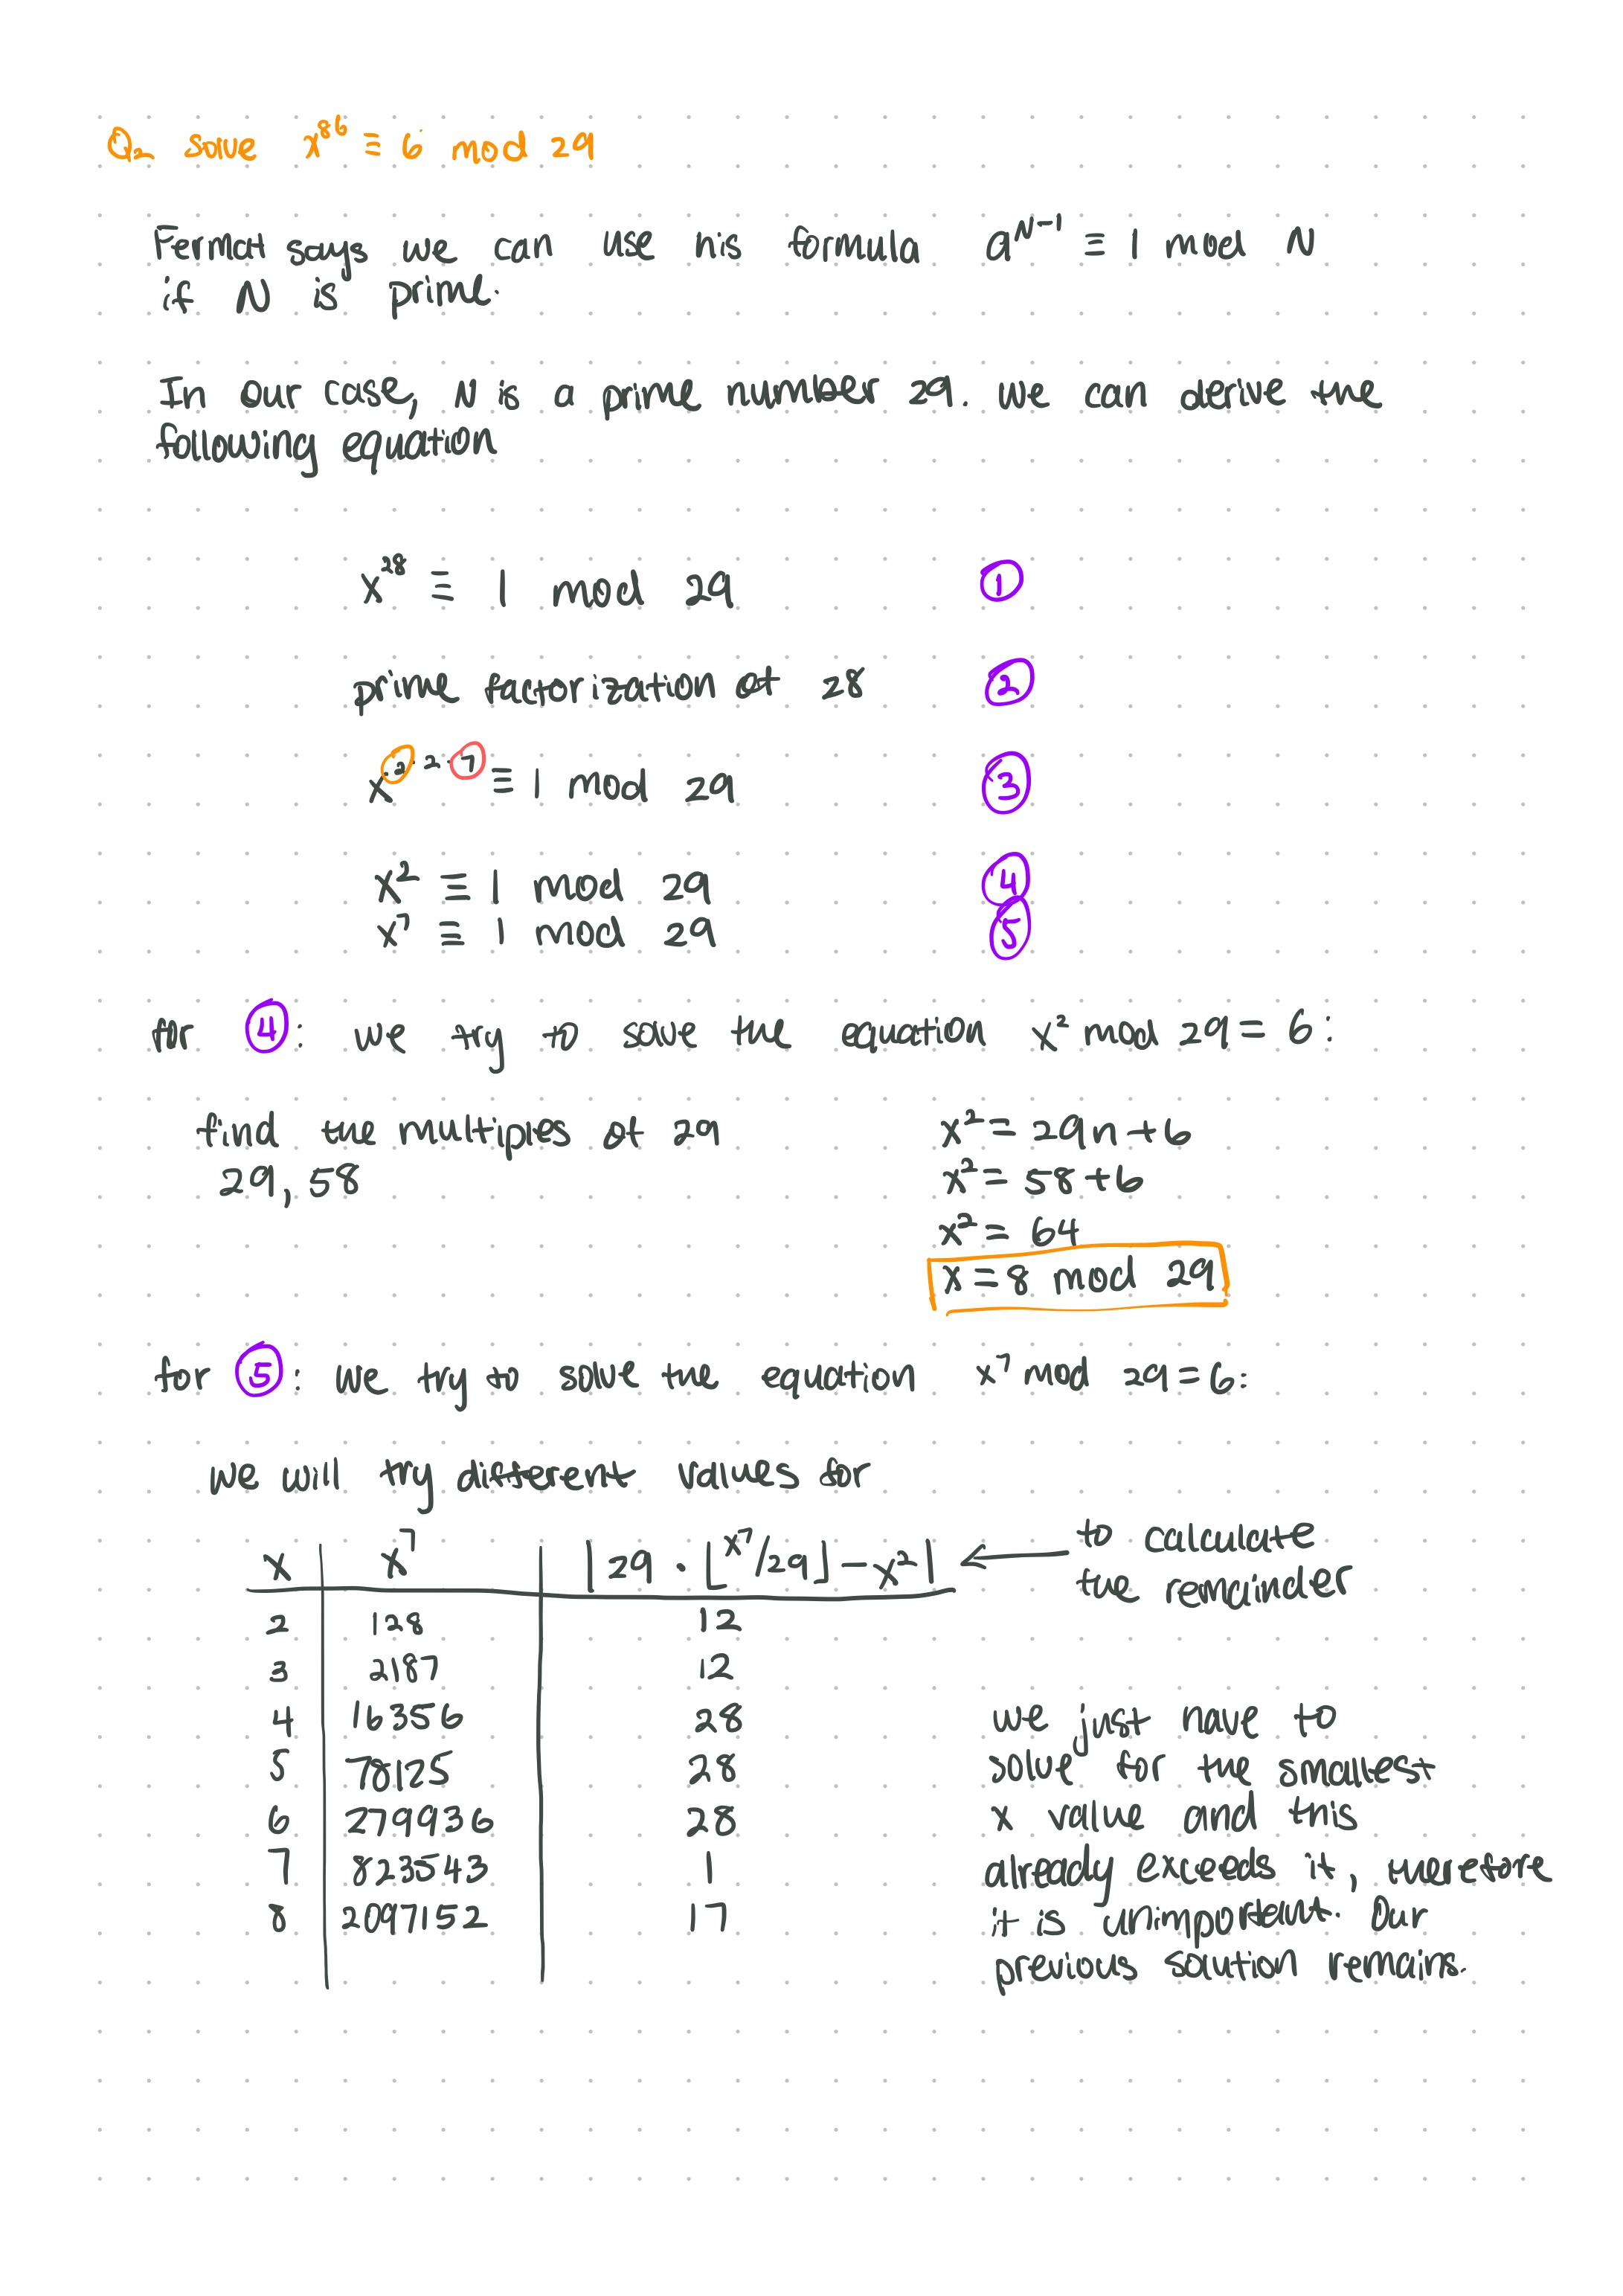 Q2 solve x^86 ≡ 6 mod 29
Fermat says we can use his formula a^(N-1) ≡ 1 mod N
if N is prime.
In our case, N is a prime number 29. We can derive the
following equation
x^28 ≡ 1 mod 29 ①
prime factorization of 28 ②
x^(2·2·7) ≡ 1 mod 29 ③
x^2 ≡ 1 mod 29 ④
x^7 ≡ 1 mod 29 ⑤
for ④: we try to solve the equation x^2 mod 29 = 6:
find the multiples of 29
29, 58
x^2 = 29n + 6
x^2 = 58 + 6
x^2 = 64
x = 8 mod 29
for ⑤: we try to solve the equation x^7 mod 29 = 6:
we will try different values for
x x^7 |29 · ⌊x^7/29⌋ - x^2|
to calculate
the remainder
2 128 12
3 2187 12
4 16356 28
5 78125 28
6 279936 28
7 823543 1
8 2097152 17
we just have to
solve for the smallest
x value and this
already exceeds it, therefore
it is unimportant. Our
previous solution remains.